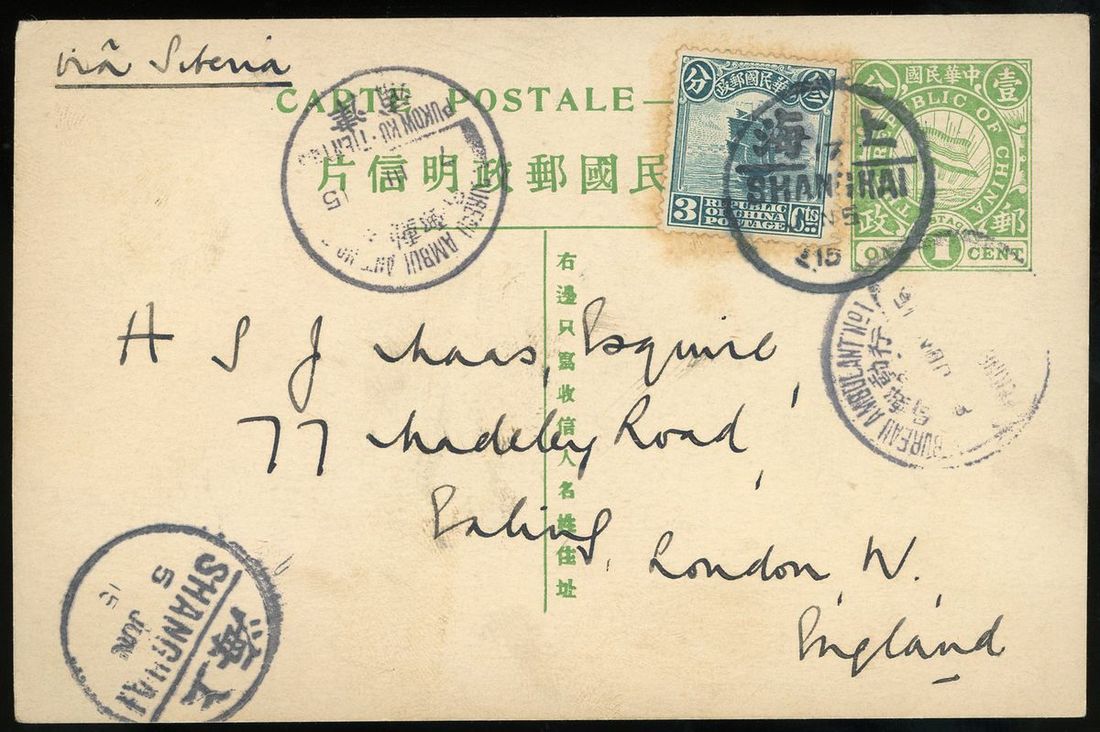 viâ Siberia
CARTE POSTALE—
片信明政郵國民
分 政郵國民華中 叁
3 REPUBLIC OF CHINA POSTAGE Cts
分 國民華中 壹
REPUBLIC OF CHINA
政 POSTAGE 郵
ONE 1 CENT
海上
SHANGHAI
15
PUKOW KU-TIENTSIN
BUREAU AMBULANT No
15
BUREAU AMBULANT No 1
行動
右邊只寫收信人名姓住址
H S J Maas, Esquire,
77 Madeley Road,
Ealing,
London W.
England
海上
SHANGHAI
5
JUN
15